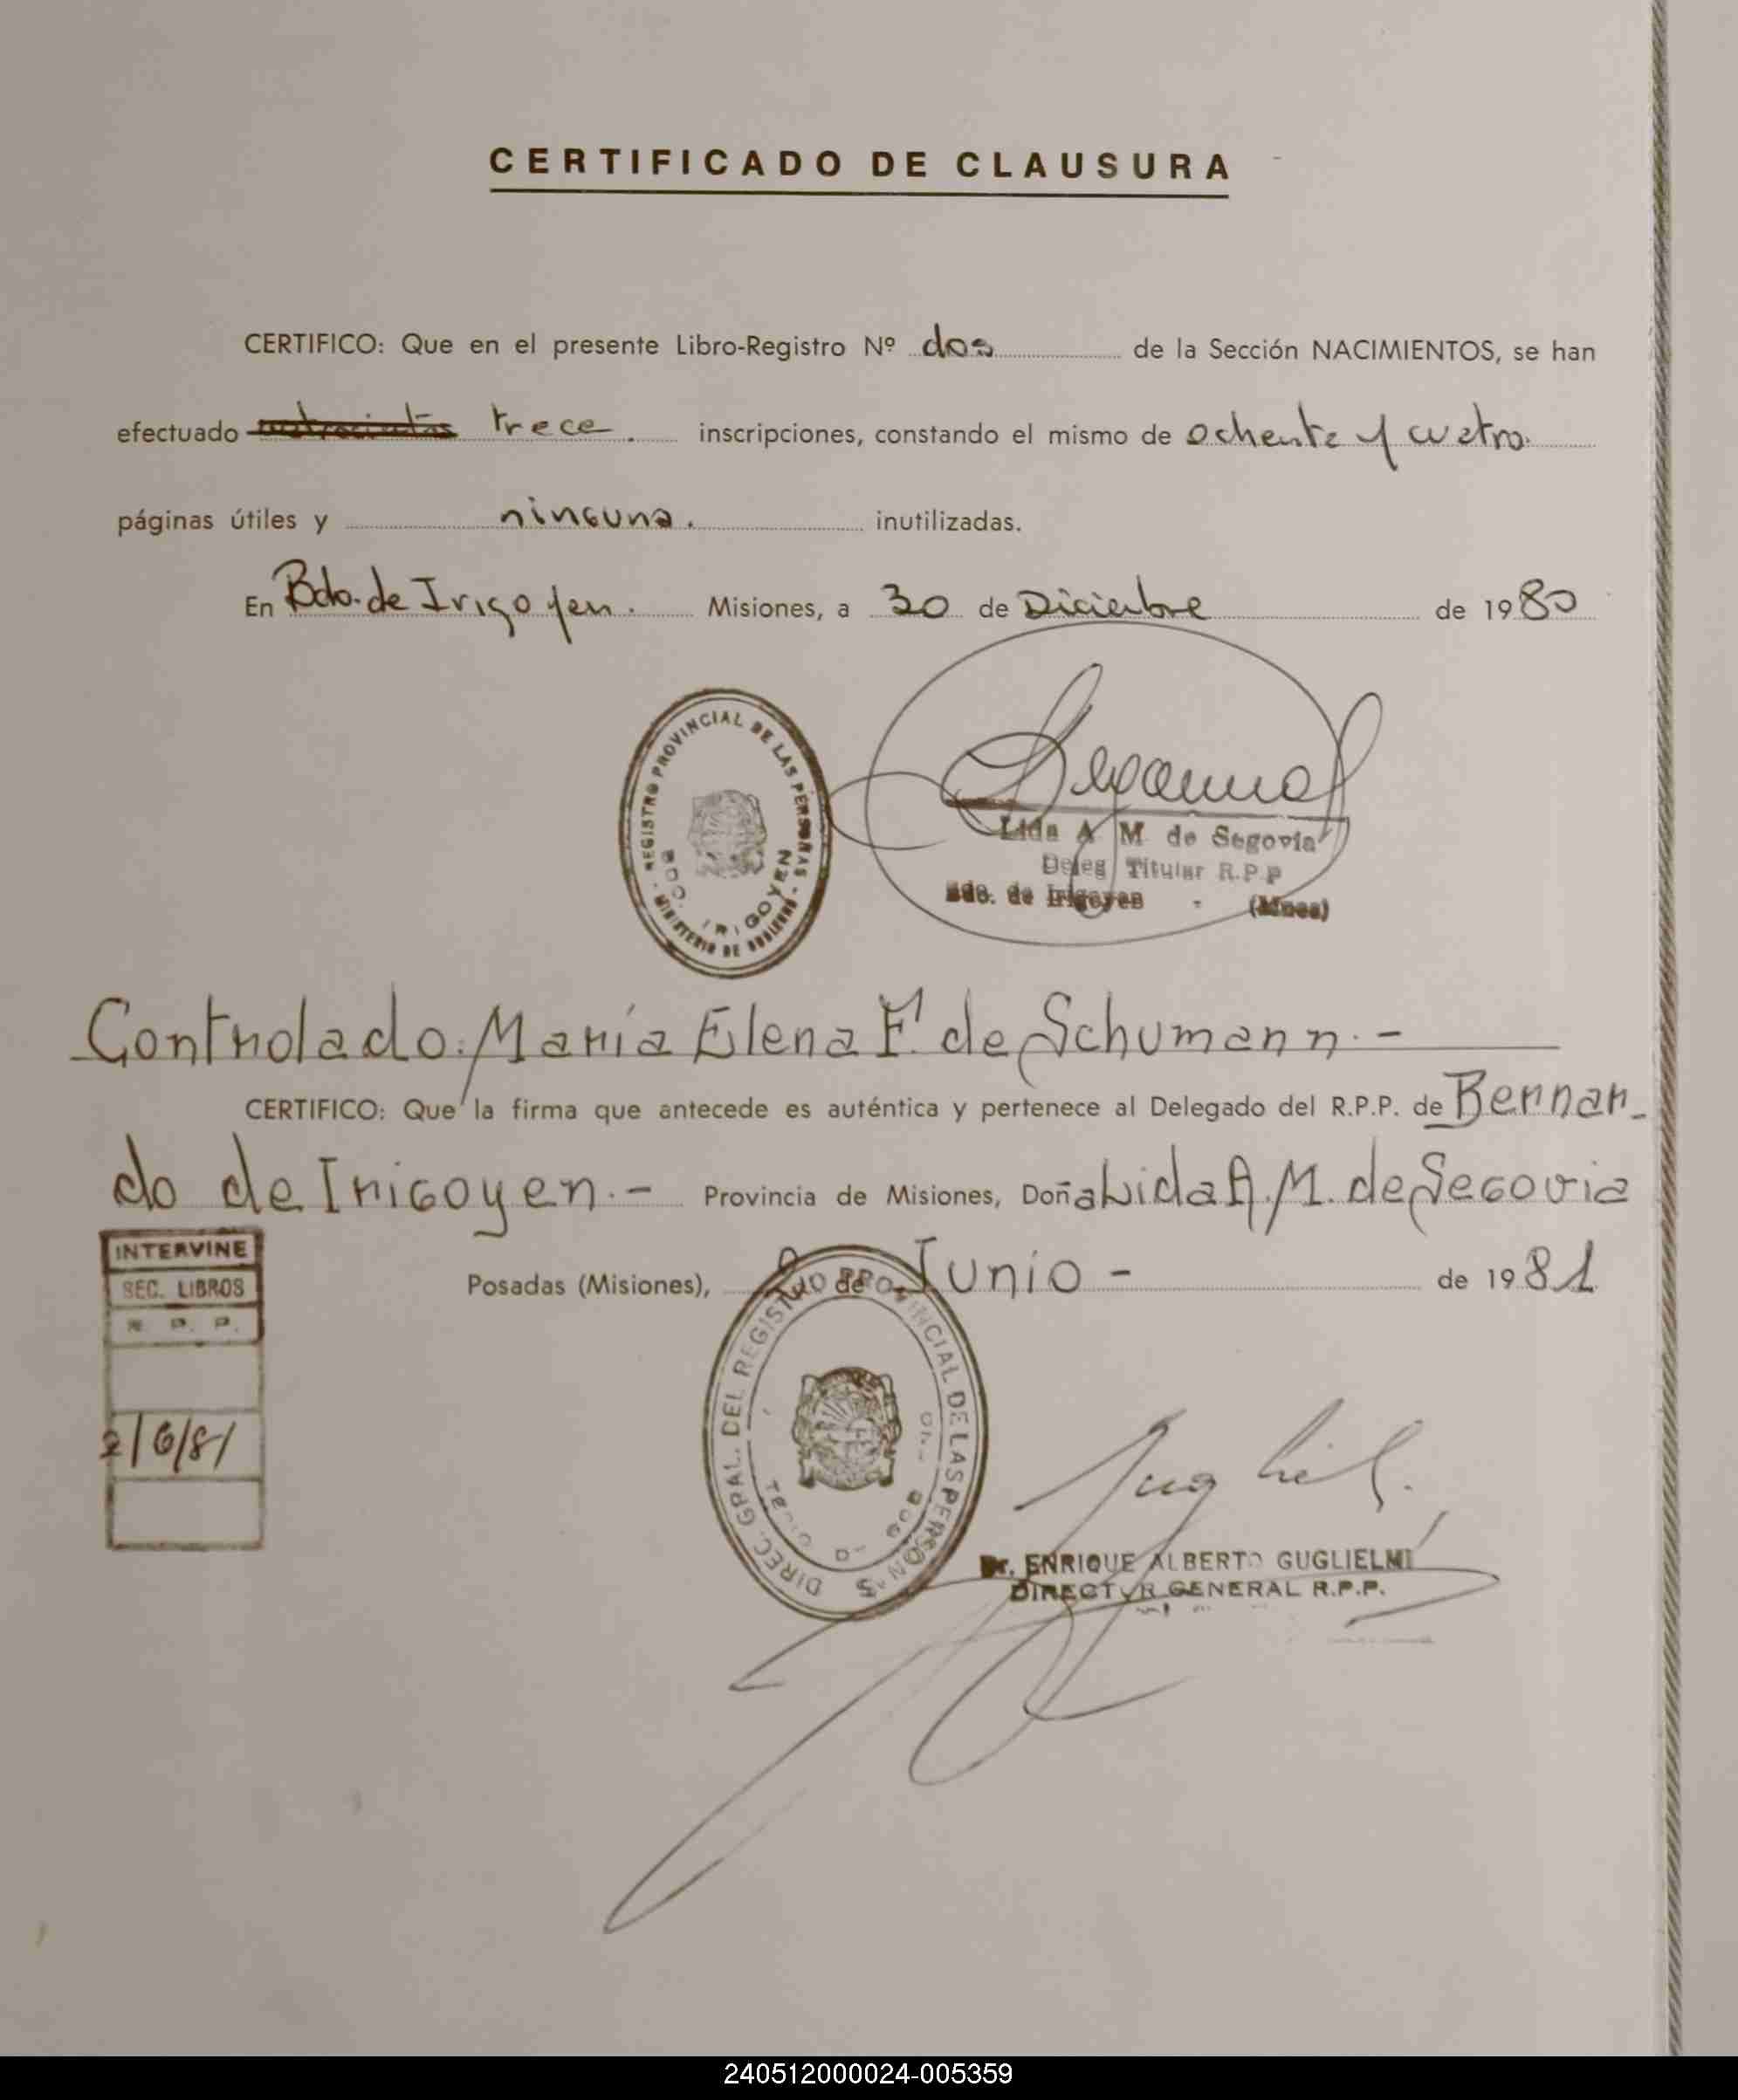 CERTIFICADO DE CLAUSURA
CERTIFICO: Que en el presente Libro-Registro Nº dos de la Sección NACIMIENTOS, se han
efectuado trece. inscripciones, constando el mismo de ochenta y cuatro.
páginas útiles y ninguna. inutilizadas.
En Bdo. de Irigoyen. Misiones, a 30 de Diciembre de 1980
REGISTRO PROVINCIAL DE LAS PERSONAS
BDO. IRIGOYEN
MINISTERIO DE GOBIERNO
Lida A M de Segovia
Deleg Titular R.P.P
Bdo. de Irigoyen - (Mnes)
Controlado: María Elena F. de Schumann.-
CERTIFICO: Que la firma que antecede es auténtica y pertenece al Delegado del R.P.P. de Bernar-
do de Irigoyen.- Provincia de Misiones, Doña Lida A. M. de Segovia
Posadas (Misiones), de Junio - de 1981
INTERVINE
SEC. LIBROS
R. P. P.
2/6/81
DIREC. GRAL. DEL REGISTRO PROVINCIAL DE LAS PERSONAS
Dr. ENRIQUE ALBERTO GUGLIELMI
DIRECTOR GENERAL R.P.P.
240512000024-005359